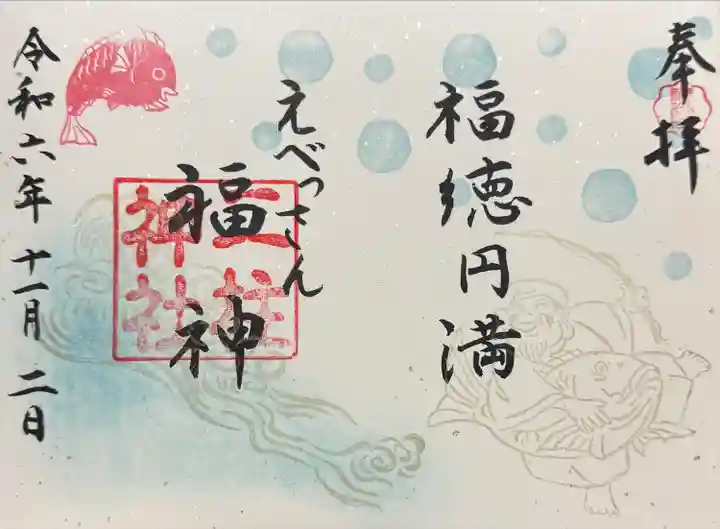 奉拝
福徳円満
えべっさん
福神
二柱
神社
令和六年十一月二日